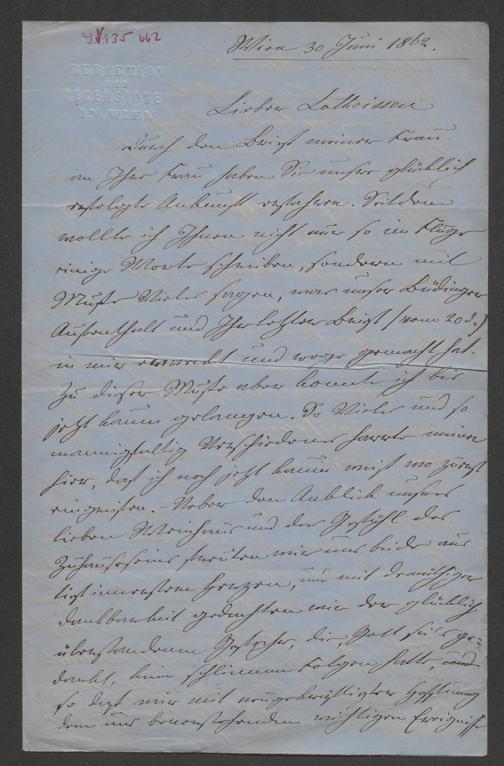 JN 135 662
REDACTION
DER
RECENSIONEN
IN WIEN
Wien 30 Juni 1862.
Lieber Lotheissen
Durch den Brief meiner Frau
an Ihre Frau haben Sie unsre glücklich
erfolgte Ankunft erfahren. Seitdem
wollte ich Ihnen nicht nur so im Fluge
einige Worte schreiben, sondern mit
Muße Vieles sagen, was unser Büdinger
Aufenthalt und Ihr letzter Brief (vom 20 d.)
in mir erweckt und rege gemacht hat.
Zu dieser Muße aber konnte ich bis
jetzt kaum gelangen. So Vieles und so
mannigfaltig Verschiedenes harrte meiner
hier, daß ich noch jetzt kaum weiß wo zuerst
eingreifen. – Ueber den Anblick unsres
lieben Weinhaus und das Gefühl des
Zuhauseseins freuten wir uns beide aus
tiefinnerstem Herzen, und mit demüthiger
Dankbarkeit gedachten wir der glücklich
überstandenen Gefahr, die, Gott sei's ge-
dankt, keine schlimmen Folgen hatte, und
so daß wir mit neugekräftigter Hoffnung
dem uns bevorstehenden wichtigen Ereigniß